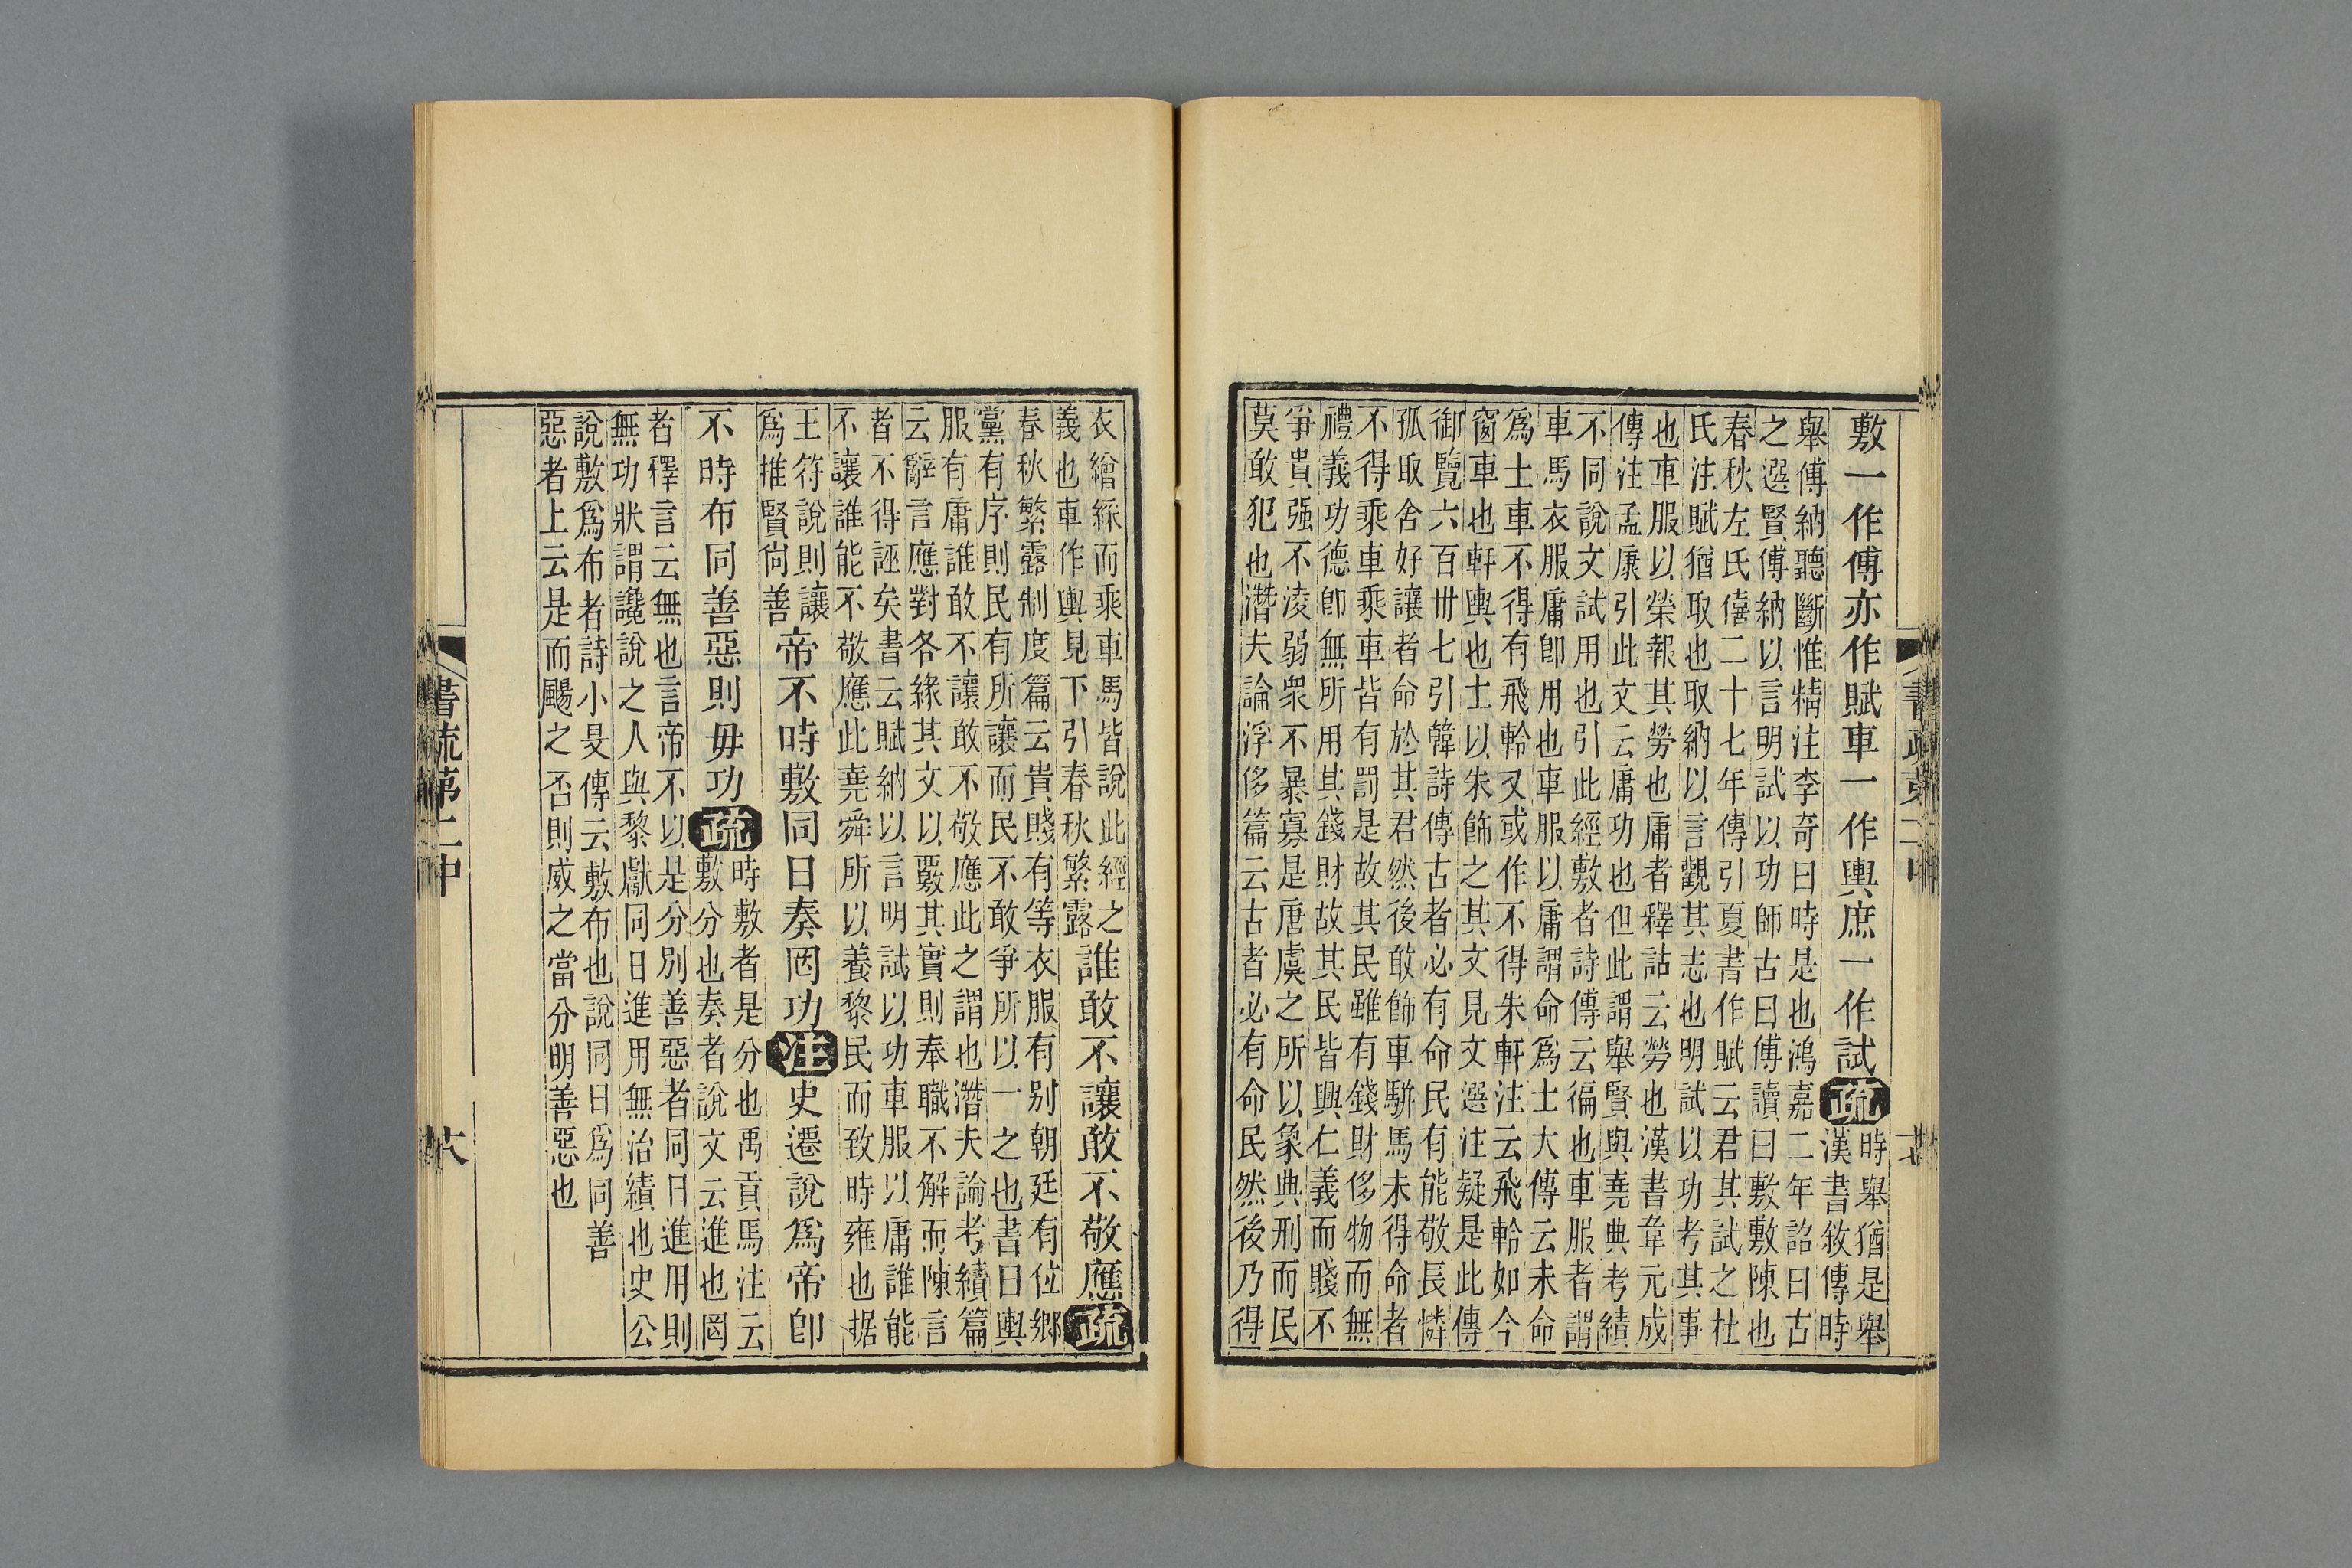 敷一作傅亦作賦車一作輿庶一作試疏時舉猶是舉
漢書敘傳時
舉傅納聽斷惟精注李奇曰時是也鴻嘉二年詔曰古
之選賢傅納以言明試以功師古曰傅讀曰敷敷陳也
春秋左氏僖二十七年傳引夏書作賦云君其試之杜
氏注賦猶取也取納以言觀其志也明試以功考其事
也車服以榮報其勞也庸者釋詁云勞也漢書韋元成
傳注孟康引此文云庸功也但此謂舉賢與堯典考績
不同說文試用也引此經敷者詩傳云徧也車服者謂
車馬衣服庸卽用也車服以庸謂命爲士大傳云未命
爲士車不得有飛軨又或作不得朱軒注云飛軨如今
窗車也軒輿也士以朱飾之其文見文選注疑是此傳
御覽六百卅七引韓詩傳古者必有命民有能敬長憐
孤取舍好讓者命於其君然後敢飾車駢馬未得命者
不得乘車乘車皆有罰是故其民雖有錢財侈物而無
禮義功德卽無所用其錢財故其民皆興仁義而賤不
爭貴强不淩弱衆不暴寡是唐虞之所以象典刑而民
莫敢犯也潛夫論浮侈篇云古者必有命民然後乃得
書疏第二中
十七
衣繒綵而乘車馬皆說此經之
義也車作輿見下引春秋繁露誰敢不讓敢不敬應疏
春秋繁露制度篇云貴賤有等衣服有別朝廷有位鄉
黨有序則民有所讓而民不敢爭所以一之也書曰輿
服有庸誰敢不讓敢不敬應此之謂也潛夫論考績篇
云辭言應對各緣其文以覈其實則奉職不解而陳言
者不得誣矣書云賦納以言明試以功車服以庸誰能
不讓誰能不敬應此堯舜所以養黎民而致時雍也据
王符說則讓
爲推賢尙善帝不時敷同日奏罔功注史遷說爲帝卽
不時布同善惡則毋功疏時敷者是分也禹貢馬注云
敷分也奏者說文云進也罔
者釋言云無也言帝不以是分別善惡者同日進用則
無功狀謂讒說之人與黎獻同日進用無治績也史公
說敷爲布者詩小旻傳云敷布也說同日爲同善
惡者上云是而颺之否則威之當分明善惡也
書疏第二中
十八